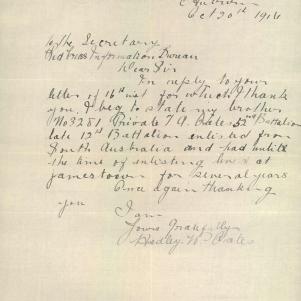 Oct 20th 1916
The Secretary
Red Cross Information Bureau
Dear Sir
In reply to your
letter of 16th inst for which I thank
you. I beg to state my brother
No 3251 Private T. A. Oates 52nd Battalion
late 12th Battalion enlisted from
South Australia and had until
the time of enlisting lived at
Jamestown for several years
Once again thanking
you
I am
Yours Gratefully
Hedley W. Oates